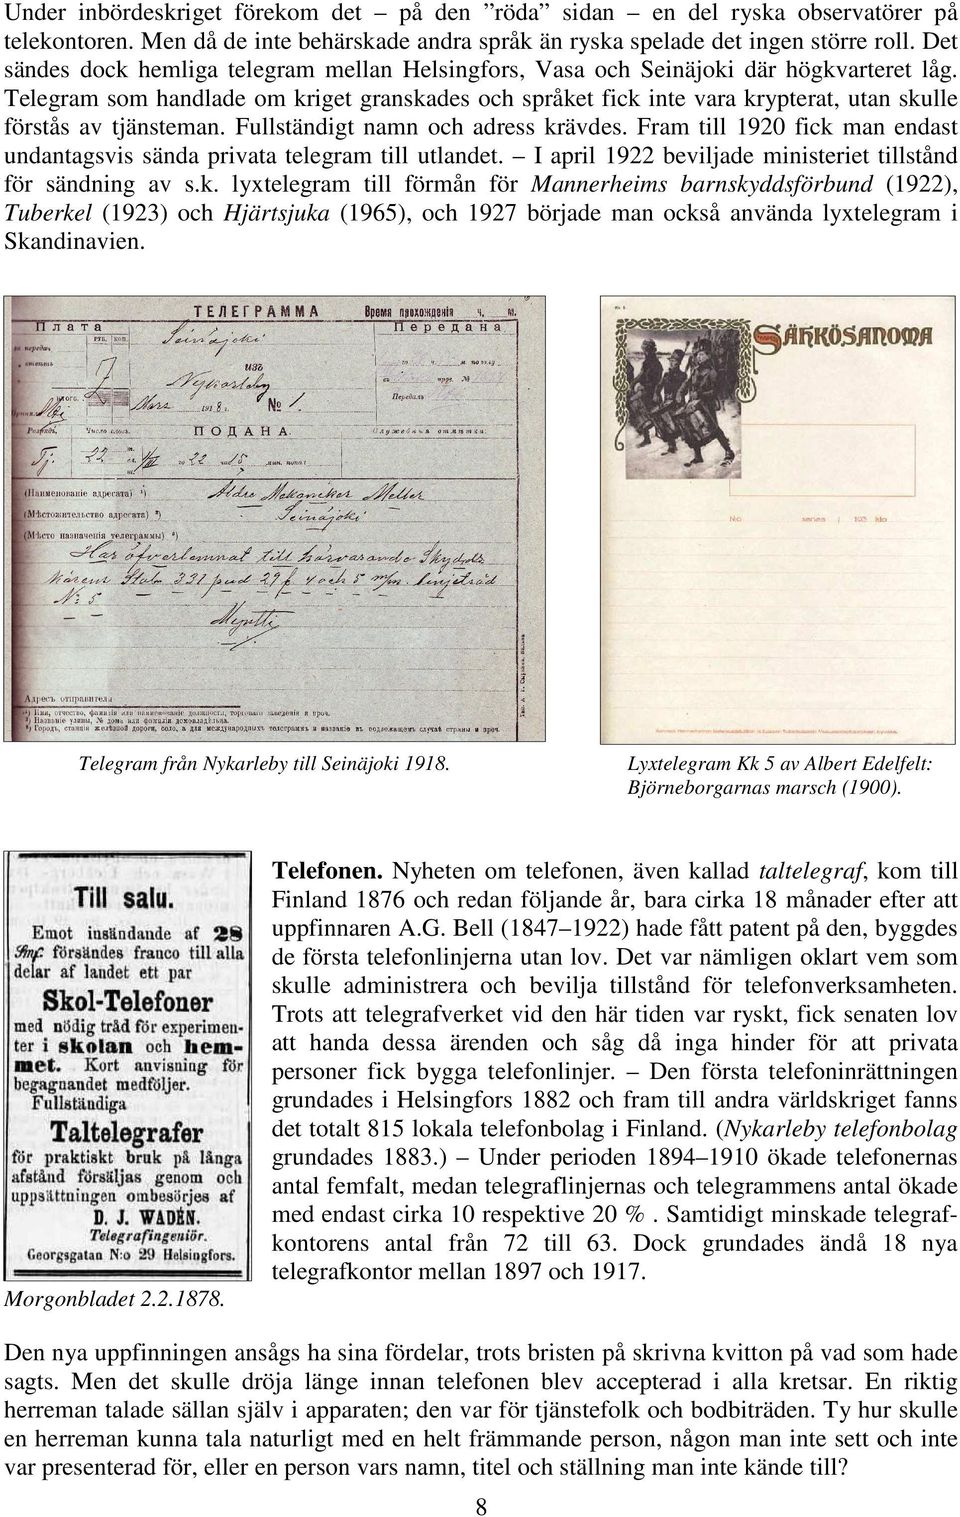 Under inbördeskriget förekom det – på den ”röda” sidan – en del ryska observatörer på
telekontoren. Men då de inte behärskade andra språk än ryska spelade det ingen större roll. Det
sändes dock hemliga telegram mellan Helsingfors, Vasa och Seinäjoki där högkvarteret låg.
Telegram som handlade om kriget granskades och språket fick inte vara krypterat, utan skulle
förstås av tjänsteman. Fullständigt namn och adress krävdes. Fram till 1920 fick man endast
undantagsvis sända privata telegram till utlandet. – I april 1922 beviljade ministeriet tillstånd
för sändning av s.k. lyxtelegram till förmån för Mannerheims barnskyddsförbund (1922),
Tuberkel (1923) och Hjärtsjuka (1965), och 1927 började man också använda lyxtelegram i
Skandinavien.
ТЕЛЕГРАММА
Время прохожденія ч. м.
Плата
Передана
РУБ. КОП.
Seinäjoki
изъ
7
Nykarleby
Mars 1918 г. № 1.
Передалъ
ПОДАНА.
Служебныя отмѣтки.
Число словъ.
22
22 15
(Наименованіе адресата) ¹)
Äldre Mekaniker Meller
(Мѣстожительство адресата) ²)
Seinäjoki
(Мѣсто назначенія телеграммы) ³)
Har öfverlemnat till härvarande Skydds
kåren 331 pud 29 4 och 5 m/m linjetråd
No 5
Myntti
Адресъ отправителя
¹) Имя, отчество, фамилія или наименованіе должности, торговаго заведенія и проч.
²) Названіе улицы, № дома или фамилія домовладѣльца.
³) Городъ, станція желѣзной дороги, село, а для международныхъ телеграммъ и названіе въ подлежащемъ случаѣ страны и проч.
SÄHKÖSANOMA
N:o series / 193 klo
Telegram från Nykarleby till Seinäjoki 1918.
Lyxtelegram Kk 5 av Albert Edelfelt:
Björneborgarnas marsch (1900).
Till salu.
Emot insändande af 28
Smf. försändes franco till alla
delar af landet ett par
Skol-Telefoner
med nödig tråd för experimen-
ter i skolan och hem-
met. Kort anvisning för
begagnandet medföljer.
Fullständiga
Taltelegrafer
för praktiskt bruk på långa
afstånd försäljas genom och
uppsättningen ombesörjes af
D. J. WADÉN.
Telegrafingeniör.
Georgsgatan N:o 29 Helsingfors.
Morgonbladet 2.2.1878.
Telefonen. Nyheten om telefonen, även kallad taltelegraf, kom till
Finland 1876 och redan följande år, bara cirka 18 månader efter att
uppfinnaren A.G. Bell (1847–1922) hade fått patent på den, byggdes
de första telefonlinjerna utan lov. Det var nämligen oklart vem som
skulle administrera och bevilja tillstånd för telefonverksamheten.
Trots att telegrafverket vid den här tiden var ryskt, fick senaten lov
att handa dessa ärenden och såg då inga hinder för att privata
personer fick bygga telefonlinjer. – Den första telefoninrättningen
grundades i Helsingfors 1882 och fram till andra världskriget fanns
det totalt 815 lokala telefonbolag i Finland. (Nykarleby telefonbolag
grundades 1883.) – Under perioden 1894–1910 ökade telefonernas
antal femfalt, medan telegraflinjernas och telegrammens antal ökade
med endast cirka 10 respektive 20 % . Samtidigt minskade telegraf-
kontorens antal från 72 till 63. Dock grundades ändå 18 nya
telegrafkontor mellan 1897 och 1917.
Den nya uppfinningen ansågs ha sina fördelar, trots bristen på skrivna kvitton på vad som hade
sagts. Men det skulle dröja länge innan telefonen blev accepterad i alla kretsar. En riktig
herreman talade sällan själv i apparaten; den var för tjänstefolk och bodbiträden. Ty hur skulle
en herreman kunna tala naturligt med en helt främmande person, någon man inte sett och inte
var presenterad för, eller en person vars namn, titel och ställning man inte kände till?
8